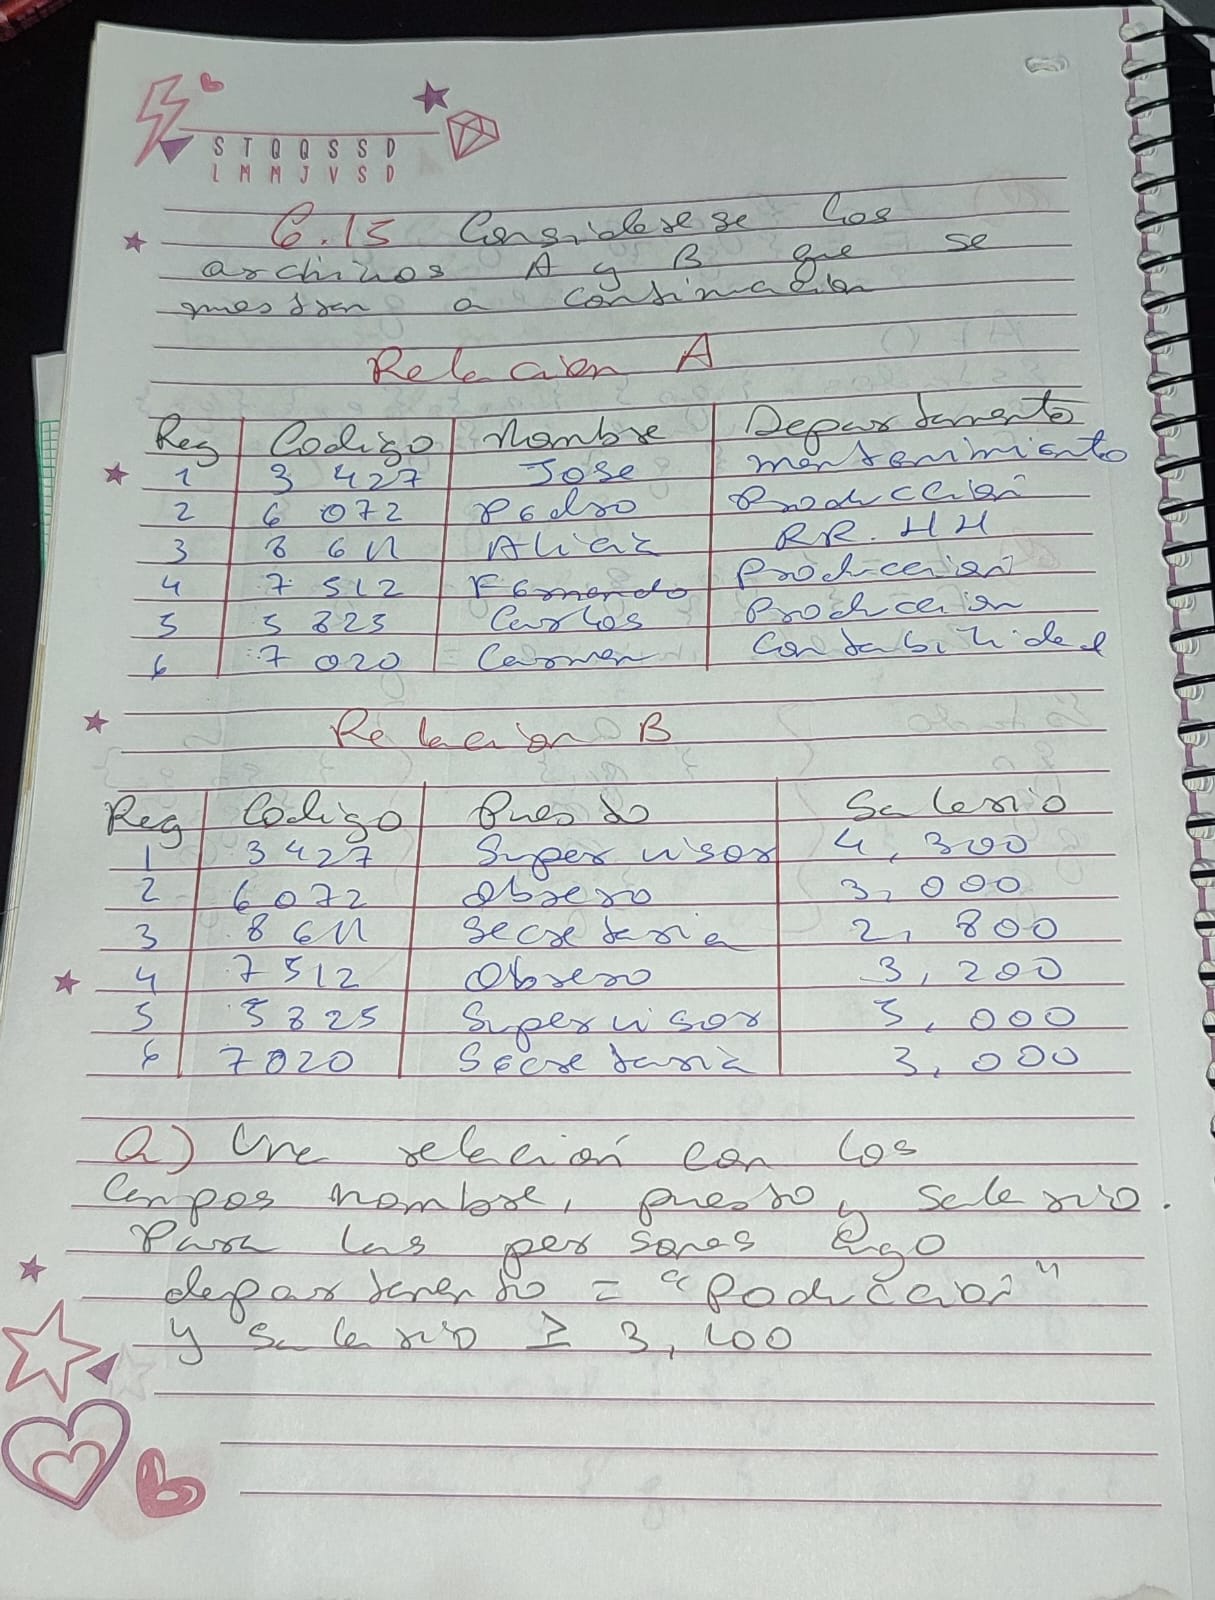 S T Q Q S S D
L M M J V S D
6.15 Considerese los
archivos A y B que se
muestran a continuación
Relación A
Reg Codigo Nombre Departamento
1 3 427 Jose mantenimiento
2 6 072 Pedro Producción
3 8 611 Alicia RR.HH
4 7 512 Fernando Producción
5 5 825 Carlos Producción
6 7 020 Carmen Contabilidad
Relación B
Reg Codigo Puesto Salario
1 3427 Supervisor 4,300
2 6072 Obrero 3,000
3 8611 Secretaria 2,800
4 7512 Obrero 3,200
5 5825 Supervisor 5,000
6 7020 Secretaria 3,000
a) Una relación con los
Campos nombre, puesto y salario.
Para las personas
departamento = "Poducción"
y salario ≥ 3,100